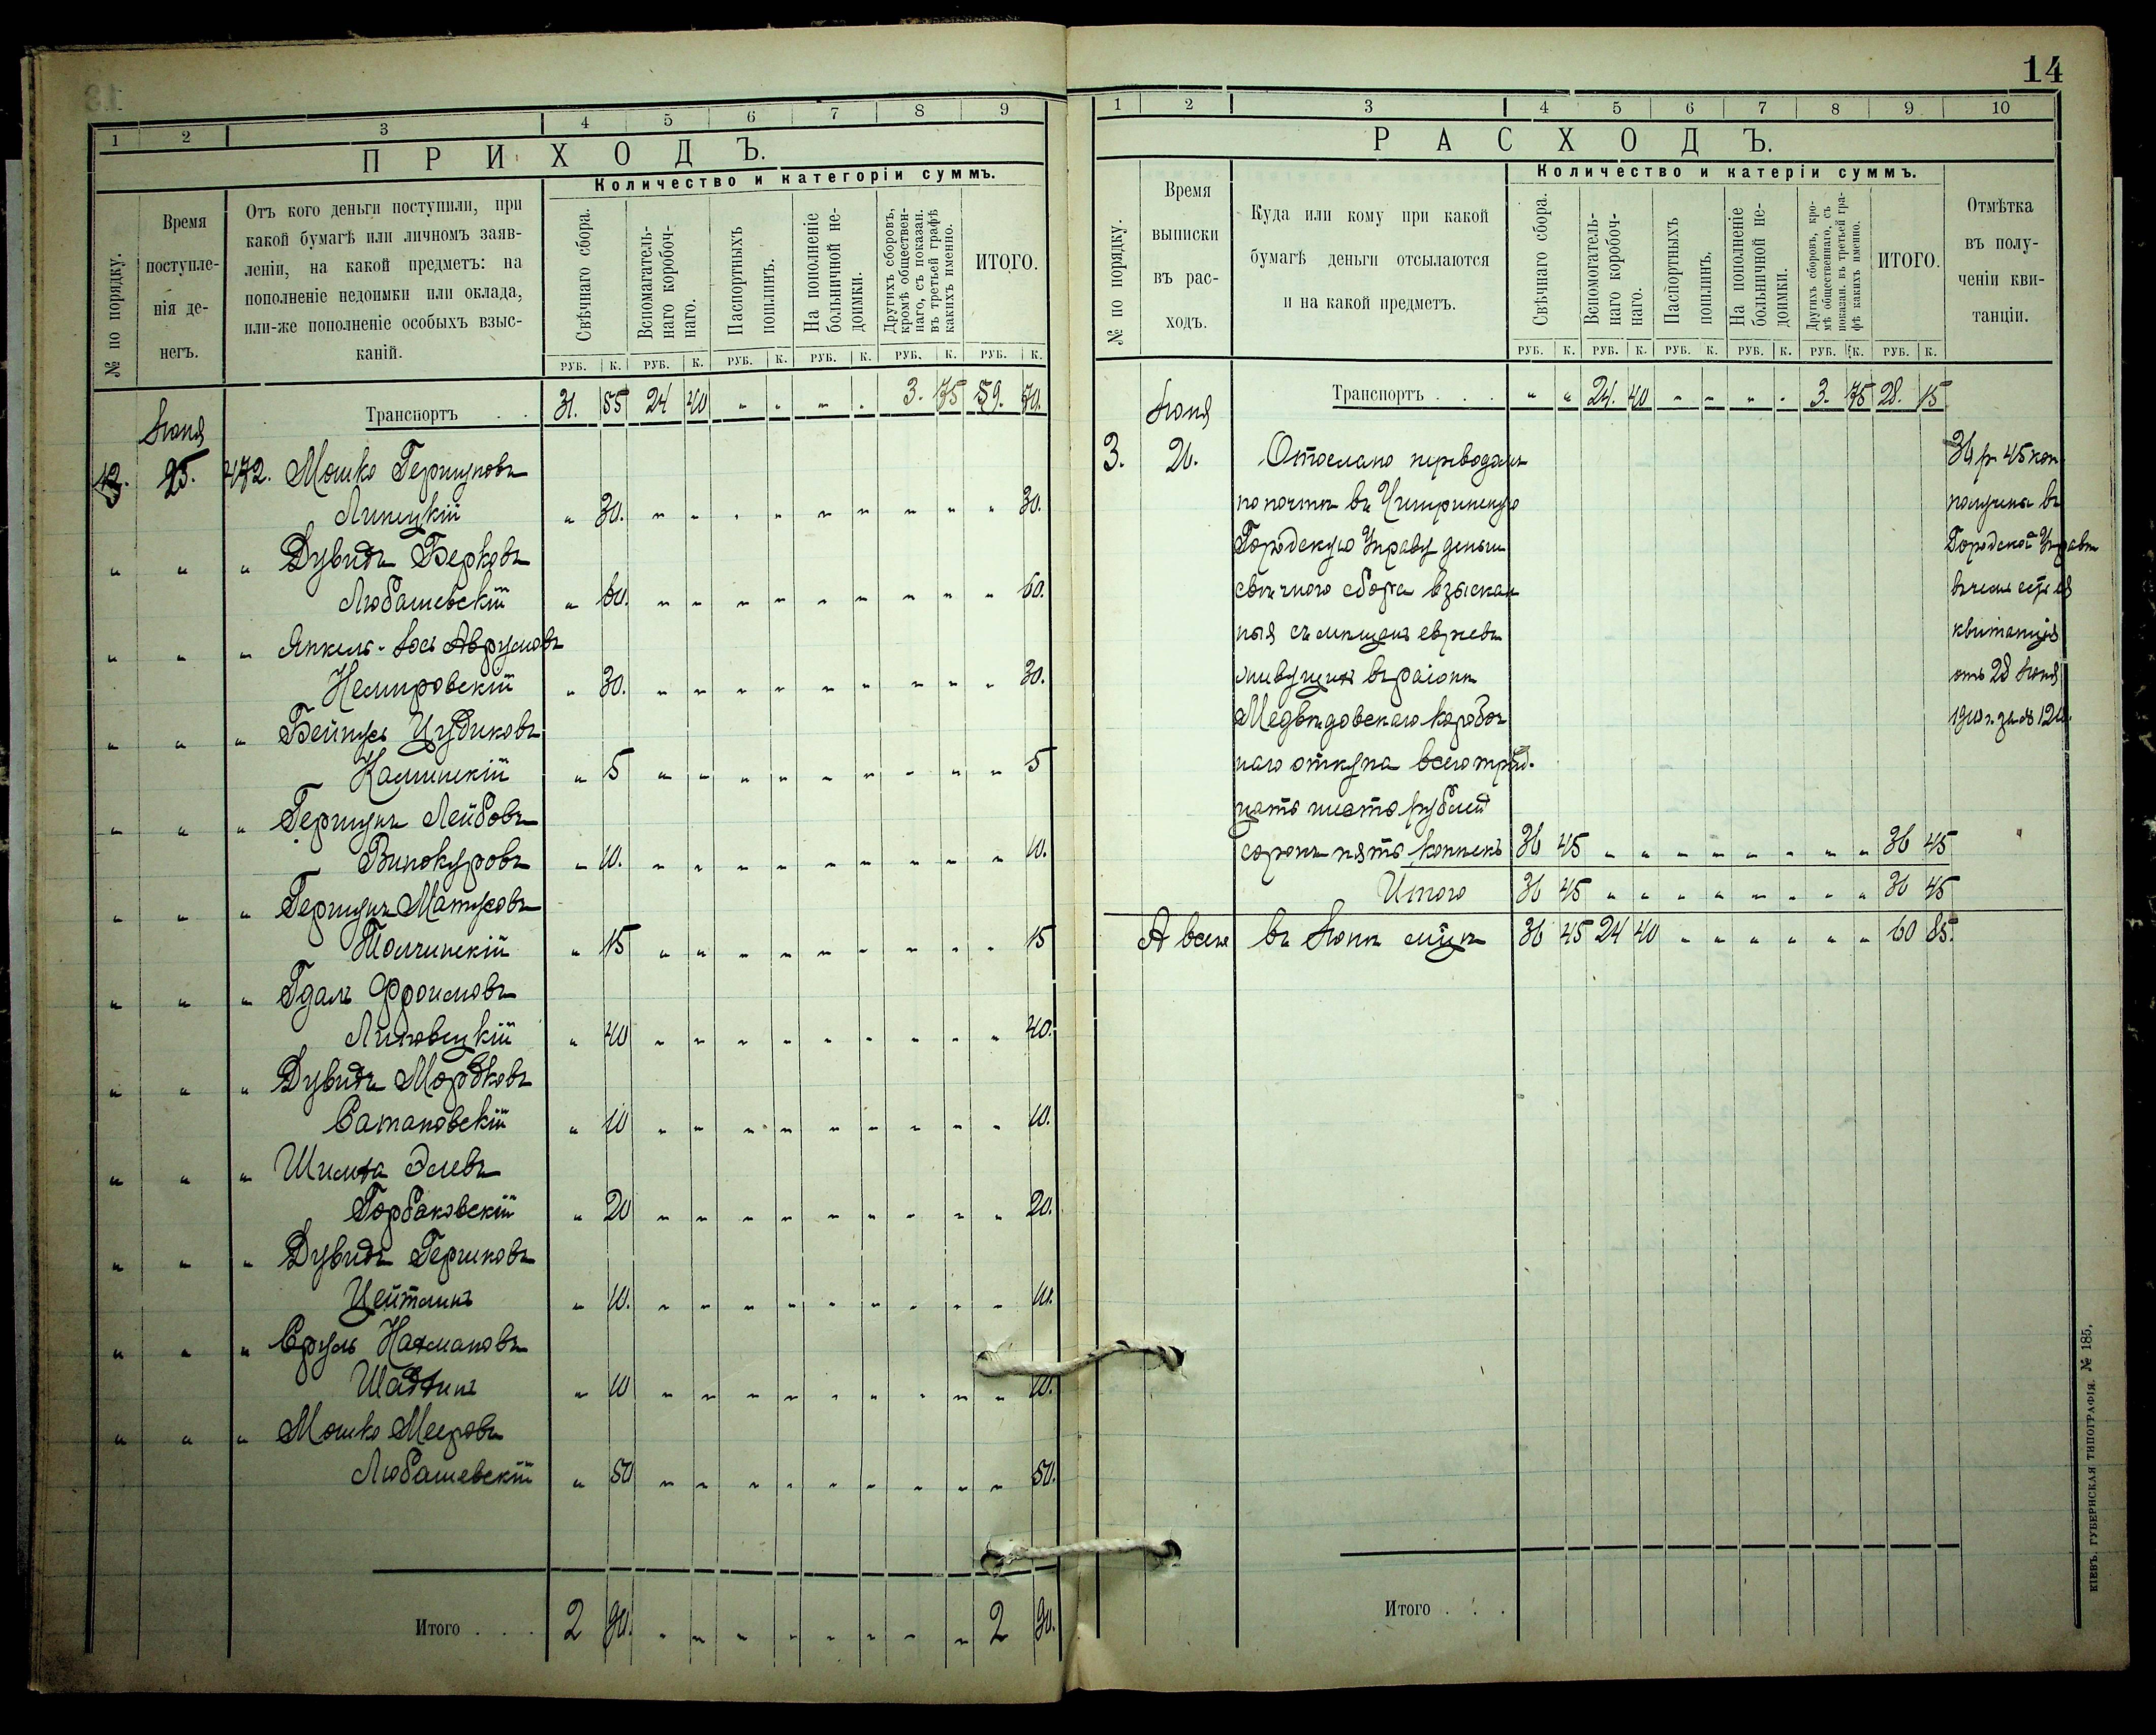 14
1 2 3 4 5 6 7 8 9
ПРИХОДЪ.
Количество и категоріи суммъ.
№ по порядку.
Время
поступле-
нія де-
негъ.
Отъ кого деньги поступили, при
какой бумагѣ или личномъ заяв-
леніи, на какой предметъ: на
пополненіе недоимки или оклада,
или-же пополненіе особыхъ взыс-
каній.
Свѣчнаго сбора.
Вспомагатель-
наго коробоч-
наго.
Паспортныхъ
пошлинъ.
На пополненіе
больничной не-
доимки.
Другихъ сборовъ,
кромѣ обществен-
наго, съ показан.
въ третьей графѣ
какихъ именно.
ИТОГО.
РУБ. К. РУБ. К. РУБ. К. РУБ. К. РУБ. К. РУБ. К.
Транспортъ . . 31. 55 24 40 „ „ „ „ 3. 75 59. 70.
Іюня
13. 25. 472. Мошко Гершуновъ
Липецкій „ 30. „ „ „ „ „ „ „ „ „ 30.
„ „ „ Дувидъ Берковъ
Любашевскій „ 60. „ „ „ „ „ „ „ „ „ 60.
„ „ „ Янкель-Іось Аврумовъ
Немировскій „ 30. „ „ „ „ „ „ „ „ „ 30.
„ „ „ Бейнусъ Цудиковъ
Калинскій „ 5 „ „ „ „ „ „ „ „ „ 5
„ „ „ Гершунъ Лейбовъ
Винокуровъ „ 10. „ „ „ „ „ „ „ „ „ 10.
„ „ „ Гершунъ Матусовъ
Толчинскій „ 15 „ „ „ „ „ „ „ „ „ 15
„ „ „ Гдаль Фроимовъ
Липовецкій „ 40 „ „ „ „ „ „ „ „ „ 40.
„ „ „ Дувидъ Мордковъ
Сатановскій „ 10 „ „ „ „ „ „ „ „ „ 10.
„ „ „ Шимха Элевъ
Горбаковскій „ 20 „ „ „ „ „ „ „ „ „ 20.
„ „ „ Дувидъ Гершковъ
Цейтлинъ „ 10. „ „ „ „ „ „ „ „ „ 10.
„ „ „ Сруль Нахмановъ
„ 10 „ „ „ „ „ „ „ „ „ 10.
„ „ „ Мошко Мееровъ
Любашевскій „ 50 „ „ „ „ „ „ „ „ „ 50.
Итого . . . 2 90. „ „ „ „ „ „ „ „ 2 90.
1 2 3 4 5 6 7 8 9 10
РАСХОДЪ.
Количество и катеріи суммъ.
№ по порядку.
Время
выписки
въ рас-
ходъ.
Куда или кому при какой
бумагѣ деньги отсылаются
и на какой предметъ.
Свѣчнаго сбора.
Вспомогатель-
наго коробоч-
наго.
Паспортныхъ
пошлинъ.
На пополненіе
больничной не-
доимки.
Другихъ сборовъ, кро-
мѣ общественнаго, съ
показан. въ третьей гра-
фѣ какихъ именно.
ИТОГО.
Отмѣтка
въ полу-
ченіи кви-
танціи.
РУБ. К. РУБ. К. РУБ. К. РУБ. К. РУБ. К. РУБ. К.
Транспортъ . . . „ „ 24. 40 „ „ „ „ 3. 75 28. 15
Іюня
3. 26. Отослано переводомъ
по почтѣ въ Чигринскую
Городскую Управу деньги
свѣчного сбора взыскан
ныя съ мѣщанъ евреевъ
живущихъ въ районѣ
Медвѣдовскаго коробоч
наго откупа всего трид.
цать шесть рублей
сорокъ пять копѣекъ 36 45 „ „ „ „ „ „ „ „ 36 45
Итого 36 45 „ „ „ „ „ „ „ „ 36 45
А всего въ Іюнѣ м-цѣ 36 45 24 40 „ „ „ „ „ „ 60 85.
36 р 45 коп
получены въ
Городской Управѣ
квитанція
отъ 28 Іюня
КІЕВЪ. ГУБЕРНСКАЯ ТИПОГРАФІЯ. № 185.